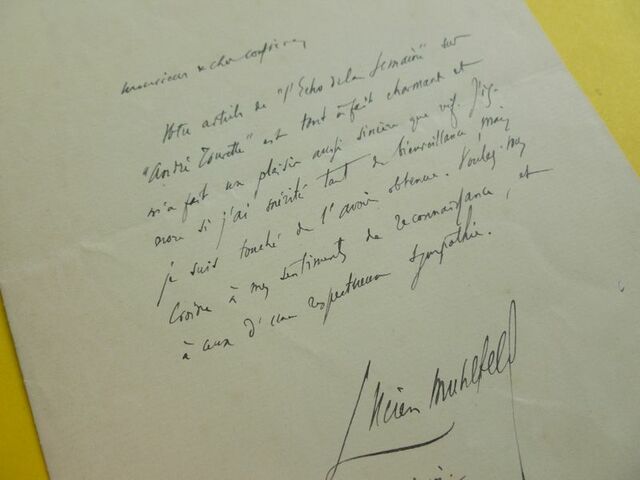 Monsieur & cher confrère,
Votre article de "l'Echo de la Semaine" sur
"André Tourette" est tout à fait charmant et
m'a fait un plaisir aussi sincère que vif. J'ig-
nore si j'ai mérité tant de bienveillance, mais
je suis touché de l'avoir obtenue. Voulez-my
croire à mes sentiments de reconnaissance, et
à ceux d'une respectueuse sympathie.
Lucien Muhlfeld